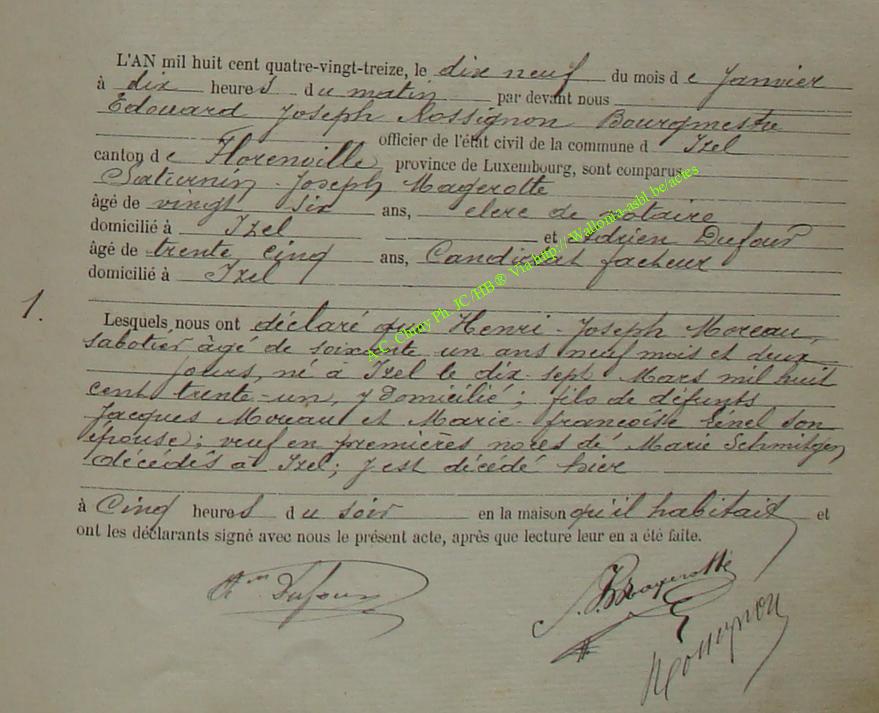 L'AN mil huit cent quatre-vingt-treize, le dix neuf du mois de Janvier
à dix heures du matin par devant nous
Edouard Joseph Rossignon Bourgmestre
officier de l'état civil de la commune d Izel
canton de Florenville province de Luxembourg, sont comparus
Saturnin Joseph Magerotte
âgé de vingt six ans, clerc de notaire
domicilié à Izel et Adrien Dufour
âgé de trente cinq ans, Candidat facteur
domicilié à Izel
1.
Lesquels nous ont déclaré que Henri-Joseph Moreau,
sabotier âgé de soixante un ans neuf mois et deux
jours, né à Izel le dix-sept Mars mil huit
cent trente-un, y Domicilié; fils de défunts
Jacques Moreau et Marie-françoise son
épouse; veuf en premières noces de Marie Schmitgen
décédés à Izel; y est décédé hier
à Cinq heures du soir en la maison qu'il habitait et
ont les déclarants signé avec nous le présent acte, après que lecture leur en a été faite.
Dufour
Magerotte
Rossignon
A.C. Chiny Ph. JC/HB® Via http://Wallonia-asbl.be/actes